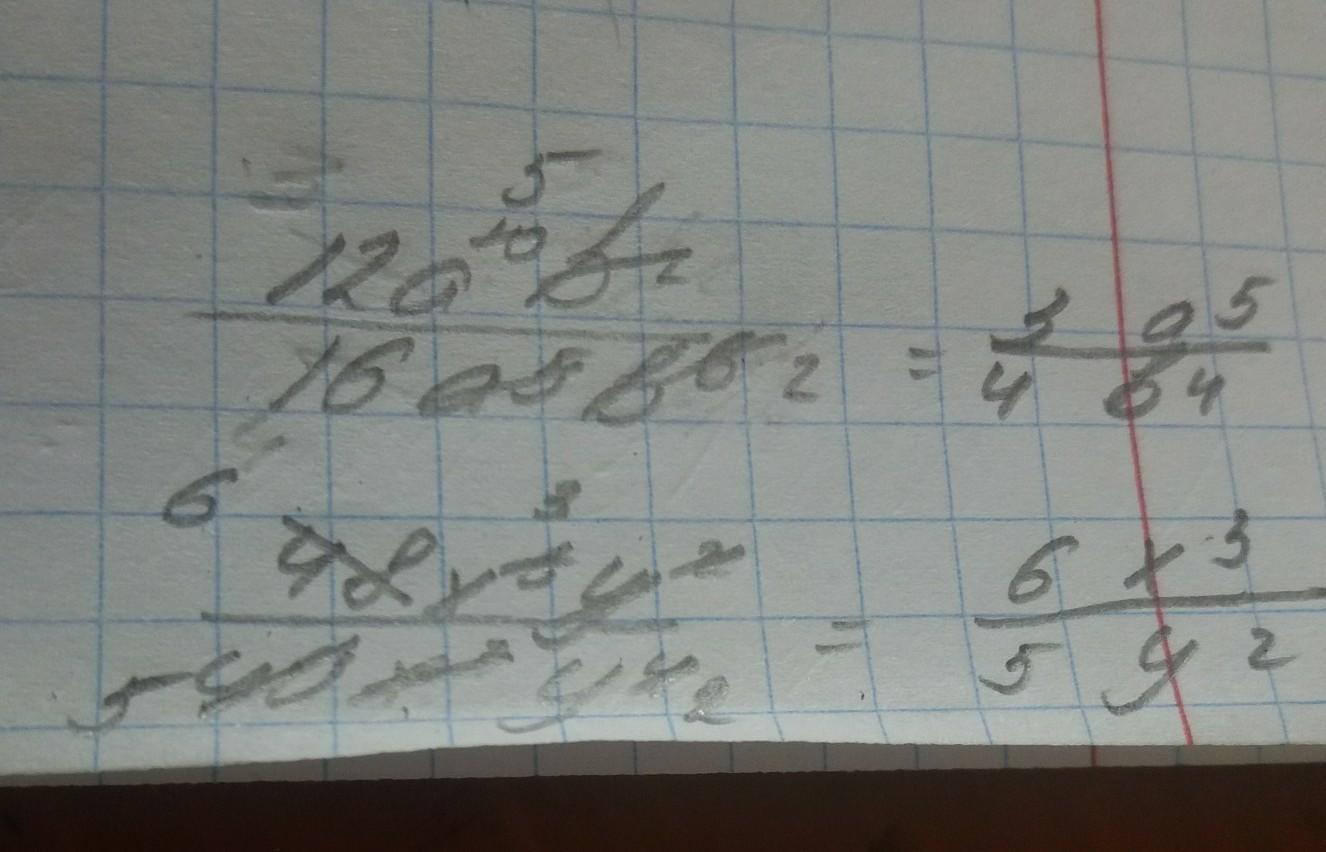 5
12a¹⁰b₂
16a⁵b⁶₂ = 3a⁵
4b⁴
6 3
48x⁵y²
5 40x²y⁴₂ = 6x³
5y²